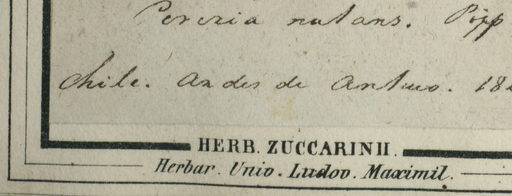 Perezia nutans. Pöpp
Chile. Andes de Antuco. 182
HERB. ZUCCARINII.
Herbar. Univ. Ludov. Maximil.